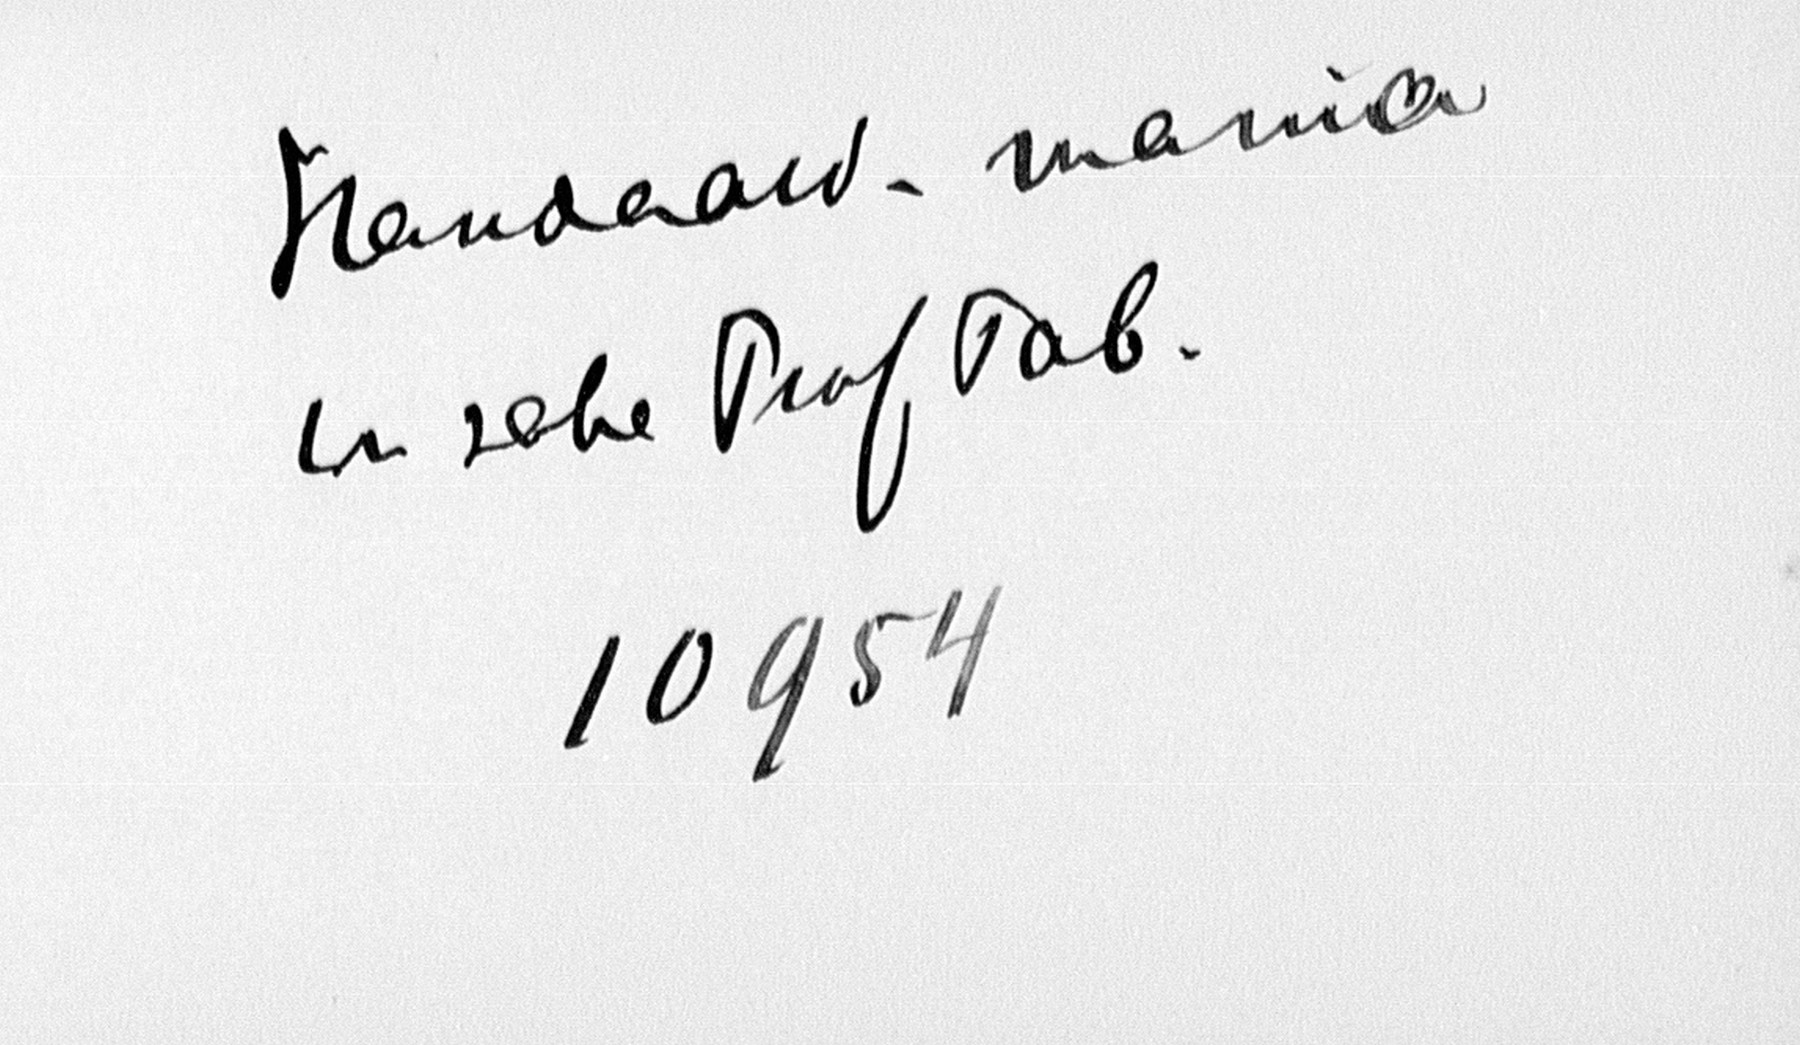 Standaard - mania
in sehe Prof Tab.
10954